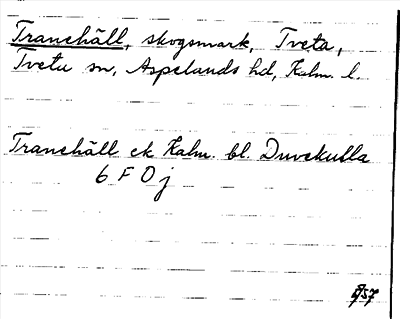 Tranehäll, skogsmark, Tveta,
Tveta sn, Aspelands hd, Kalm. l.
Tranehäll ek Kalm. bl. Duvekulla
6 F 0 j
/57